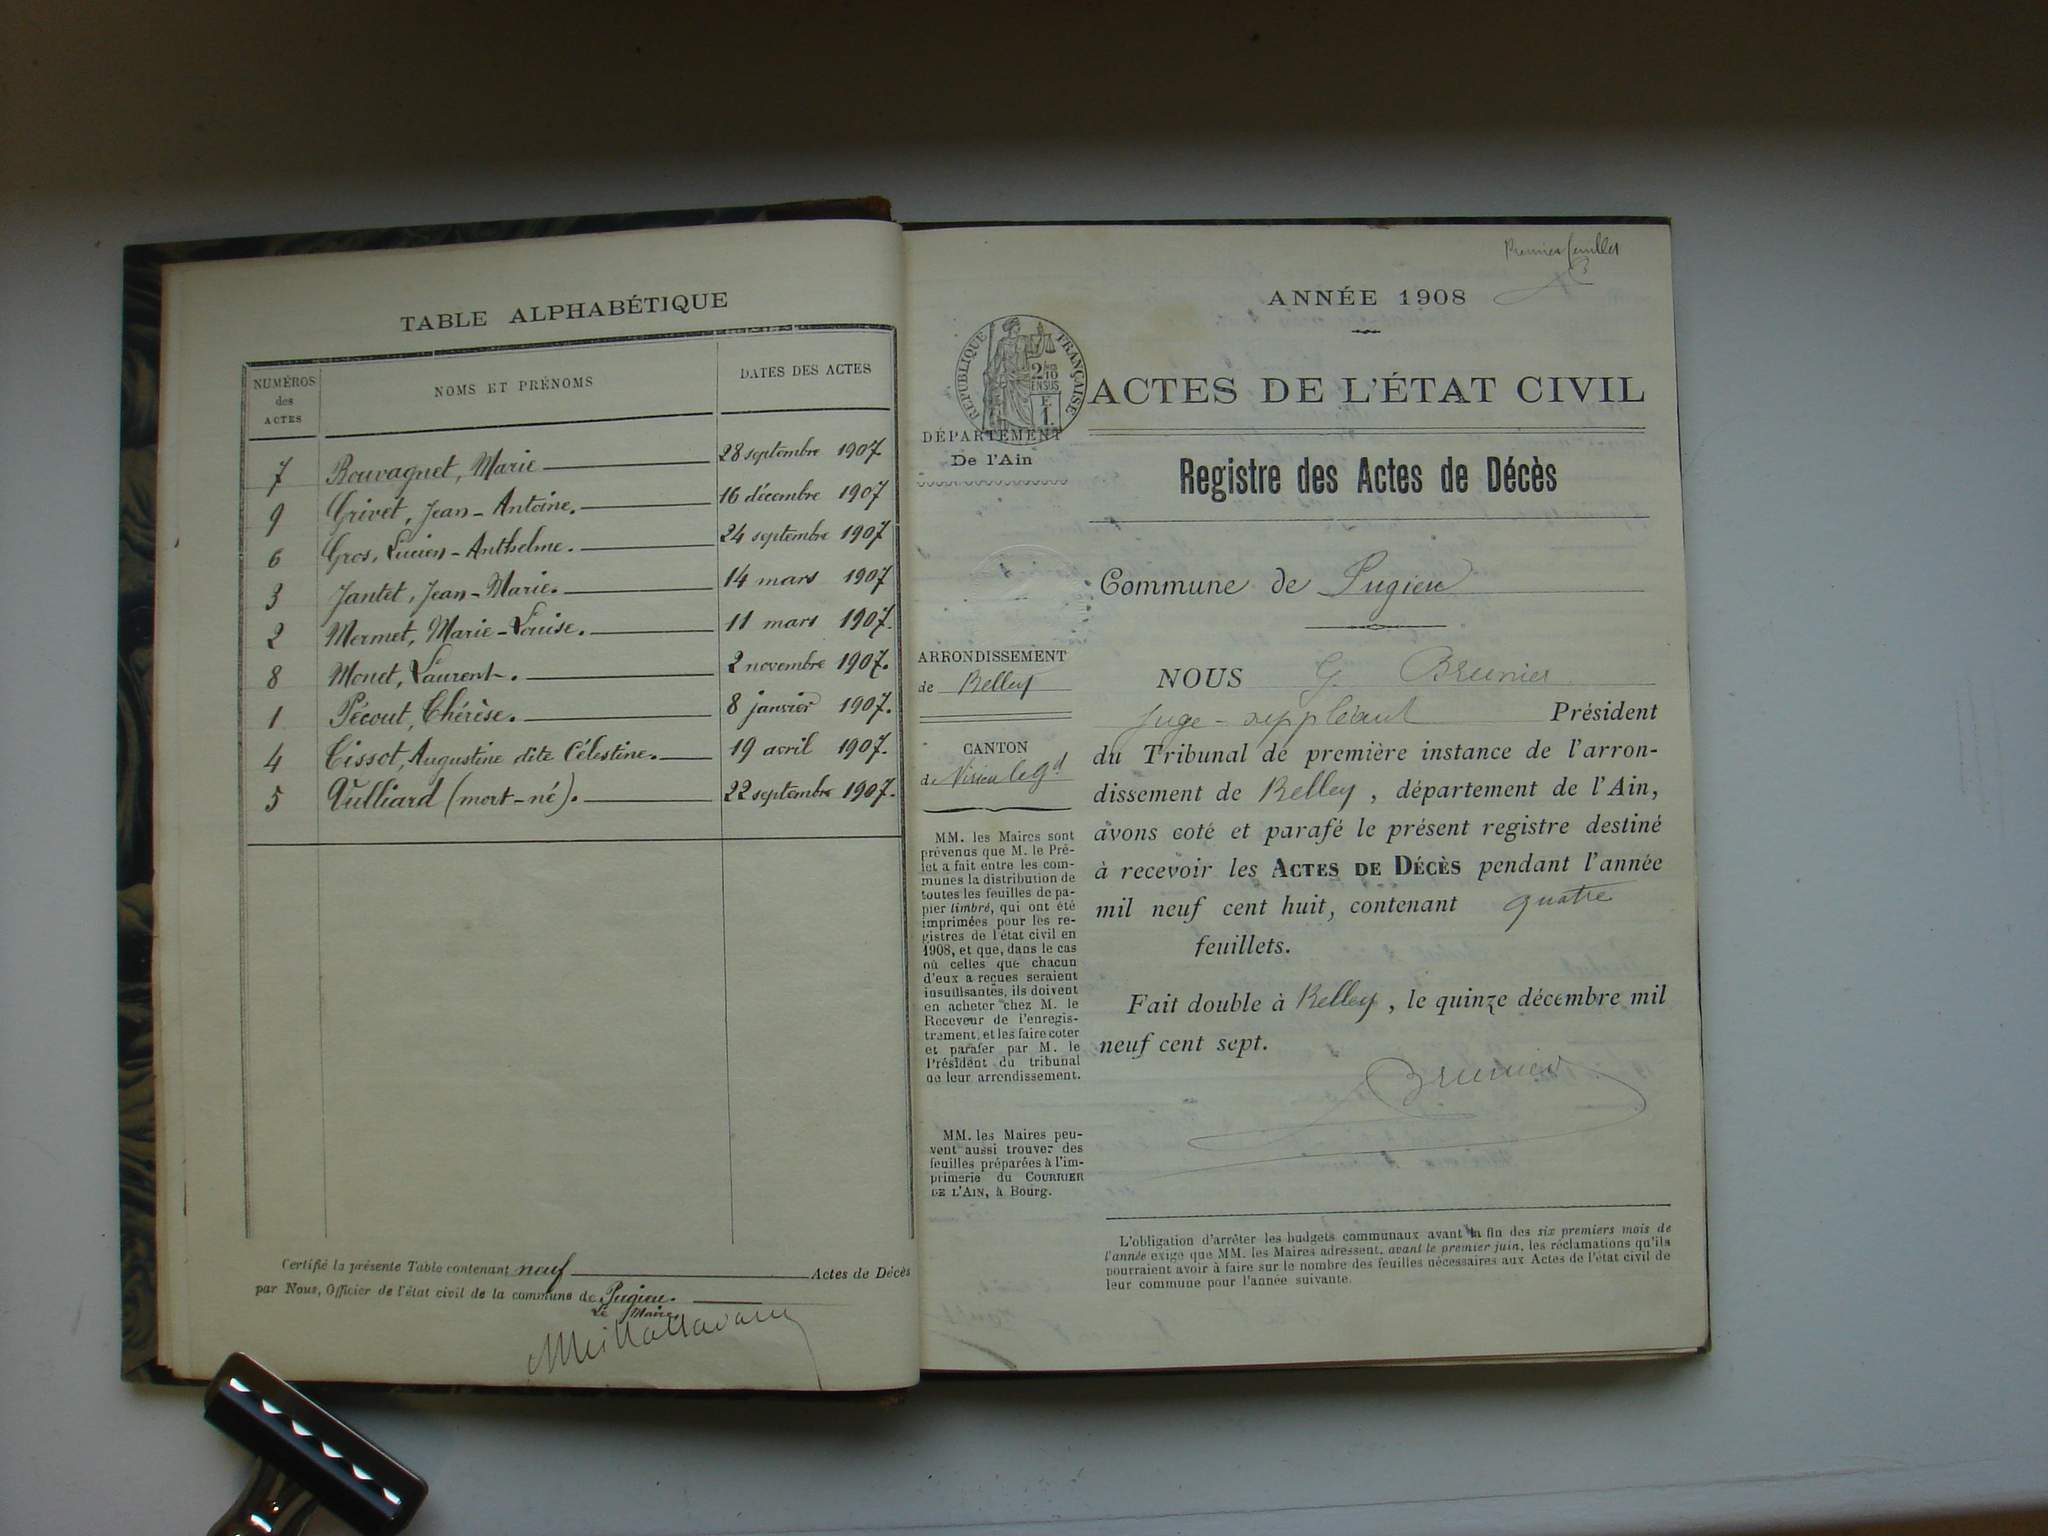 TABLE ALPHABÉTIQUE
NUMÉROS des ACTES NOMS ET PRÉNOMS DATES DES ACTES
7 Bouvagnet, Marie 28 septembre 1907
9 Grivet, Jean-Antoine. 16 décembre 1907
6 Gros, Lucien-Anthelme. 24 septembre 1907
3 Jantet, Jean-Marie. 14 mars 1907
2 Mermet, Marie-Louise. 11 mars 1907.
8 Monet, Laurent. 2 novembre 1907.
1 Pécout, Thérèse. 8 janvier 1907.
4 Tissot, Augustine dite Célestine. 19 avril 1907.
5 Vulliard (mort-né). 22 septembre 1907.
Certifié la présente Table contenant neuf Actes de Décès
par Nous, Officier de l'état civil de la commune de Pugieu.
Le Maire,
Premier feuillet
ANNÉE 1908
RÉPUBLIQUE FRANÇAISE
2/10
EN SUS
F.
1.
ACTES DE L'ÉTAT CIVIL
DÉPARTEMENT
De l'Ain
Registre des Actes de Décès
Commune de Pugieu
ARRONDISSEMENT
de Belley
CANTON
de Virieu le Gd
MM. les Maires sont
prévenus que M. le Pré-
fet a fait entre les com-
munes la distribution de
toutes les feuilles de pa-
pier timbré, qui ont été
imprimées pour les re-
gistres de l'état civil en
1908, et que, dans le cas
où celles que chacun
d'eux a reçues seraient
insuffisantes, ils doivent
en acheter chez M. le
Receveur de l'enregis-
trement, et les faire coter
et parafer par M. le
Président du tribunal
de leur arrondissement.
MM. les Maires peu-
vent aussi trouver des
feuilles préparées à l'im-
primerie du COURRIER
DE L'AIN, à Bourg.
NOUS G. Brunier
juge-suppléant Président
du Tribunal de première instance de l'arron-
dissement de Belley, département de l'Ain,
avons coté et parafé le présent registre destiné
à recevoir les ACTES DE DÉCÈS pendant l'année
mil neuf cent huit, contenant quatre
feuillets.
Fait double à Belley, le quinze décembre mil
neuf cent sept.
Brunier
L'obligation d'arrêter les budgets communaux avant la fin des six premiers mois de
l'année exige que MM. les Maires adressent, avant le premier juin, les réclamations qu'ils
pourraient avoir à faire sur le nombre des feuilles nécessaires aux Actes de l'état civil de
leur commune pour l'année suivante.